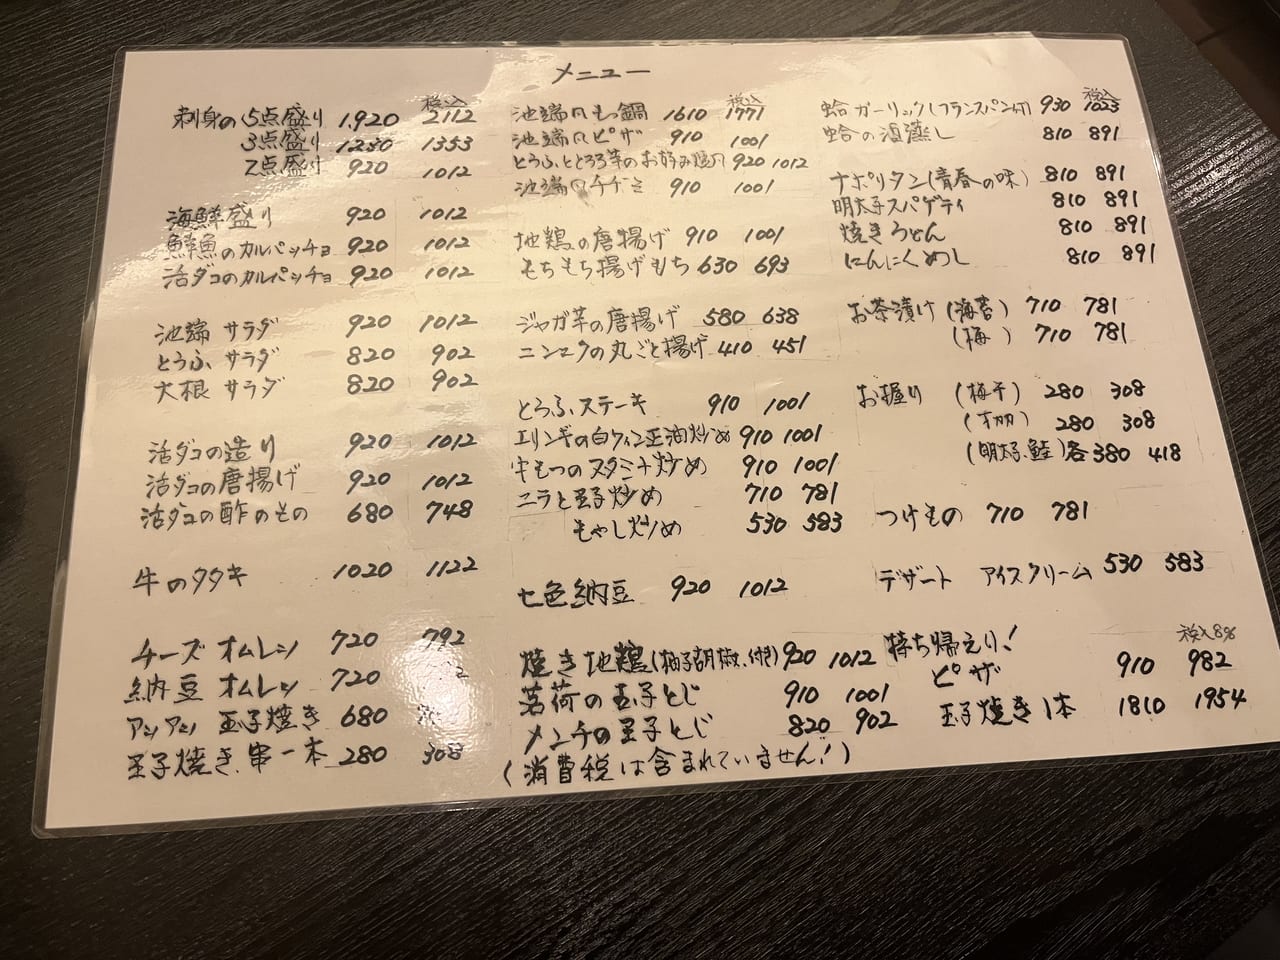 メニュー
税込
刺身の5点盛り 1.920 2112
3点盛り 1230 1353
2点盛り 920 1012
海鮮盛り 920 1012
鮮魚のカルパッチョ 920 1012
活ダコのカルパッチョ 920 1012
池端 サラダ 920 1012
とうふ サラダ 820 902
大根 サラダ 820 902
活ダコの造り 920 1012
活ダコの唐揚げ 920 1012
活ダコの酢のもの 680 748
牛のタタキ 1020 1122
チーズ オムレツ 720 792
納豆 オムレツ 720
アツアツ 玉子焼き 680
玉子焼き、串一本 280 308
税込
池端風もつ鍋 1610 1771
池端風ピザ 910 1001
とうふととろろ芋のお好み焼風 920 1012
池端風チヂミ 910 1001
地鶏の唐揚げ 910 1001
もちもち揚げもち 630 693
ジャガ芋の唐揚げ 580 638
ニンニクの丸ごと揚げ 410 451
とうふステーキ 910 1001
エリンギの白ワイン正油炒め 910 1001
牛もつのスタミナ炒め 910 1001
ニラと玉子炒め 710 781
もやし炒め 530 583
七色納豆 920 1012
焼き地鶏(柚子胡椒、付) 920 1012
茗荷の玉子とじ 910 1001
メンチの玉子とじ 820 902
(消費税は含まれていません!)
税込
蛤ガーリック(フランスパン付) 930 1023
蛤の酒蒸し 810 891
ナポリタン(青春の味) 810 891
明太子スパゲティ 810 891
焼きうどん 810 891
にんにくめし 810 891
お茶漬け(海苔) 710 781
(梅) 710 781
お握り (梅干) 280 308
(オカカ) 280 308
(明太子、鮭)各380 418
つけもの 710 781
デザート アイスクリーム 530 583
持ち帰えり!
税込8%
ピザ 910 982
玉子焼き1本 1810 1954